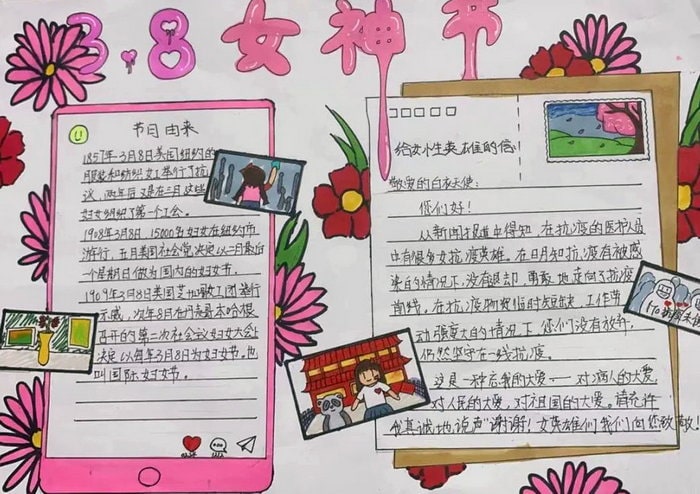 3.8女神节
节日由来
1857年3月8日美国纽约的
服装和纺织女工举行了抗
议,两年后又是在三月这些
妇女组织了第一个工会。
1908年3月8日,15000名妇女在纽约市
游行,五月美国社会党决定以二月最后
一个星期日做为国内的妇女节。
1909年3月8日美国芝加哥女工团举行
示威,次年8日在丹麦哥本哈根
召开的第二次社会议妇女大会上
决定以每年3月8日为妇女节,也
叫国际妇女节。
给女性英雄的信
敬爱的白衣天使:
你们好!
从新闻报道中得知,在抗疫的医护人员
中有很多女抗疫英雄。在明知抗疫有被感
染的情况下,没有退却,勇敢地走向抗疫
前线。在抗疫物资临时短缺,工作劳
动强度大的情况下,你们没有放弃,
仍然坚守在一线抗疫。
这是一种忘我的大爱——对病人的大爱,
对人民的大爱,对祖国的大爱。请允许
我真诚地说声"谢谢!女英雄们我们向您致敬!